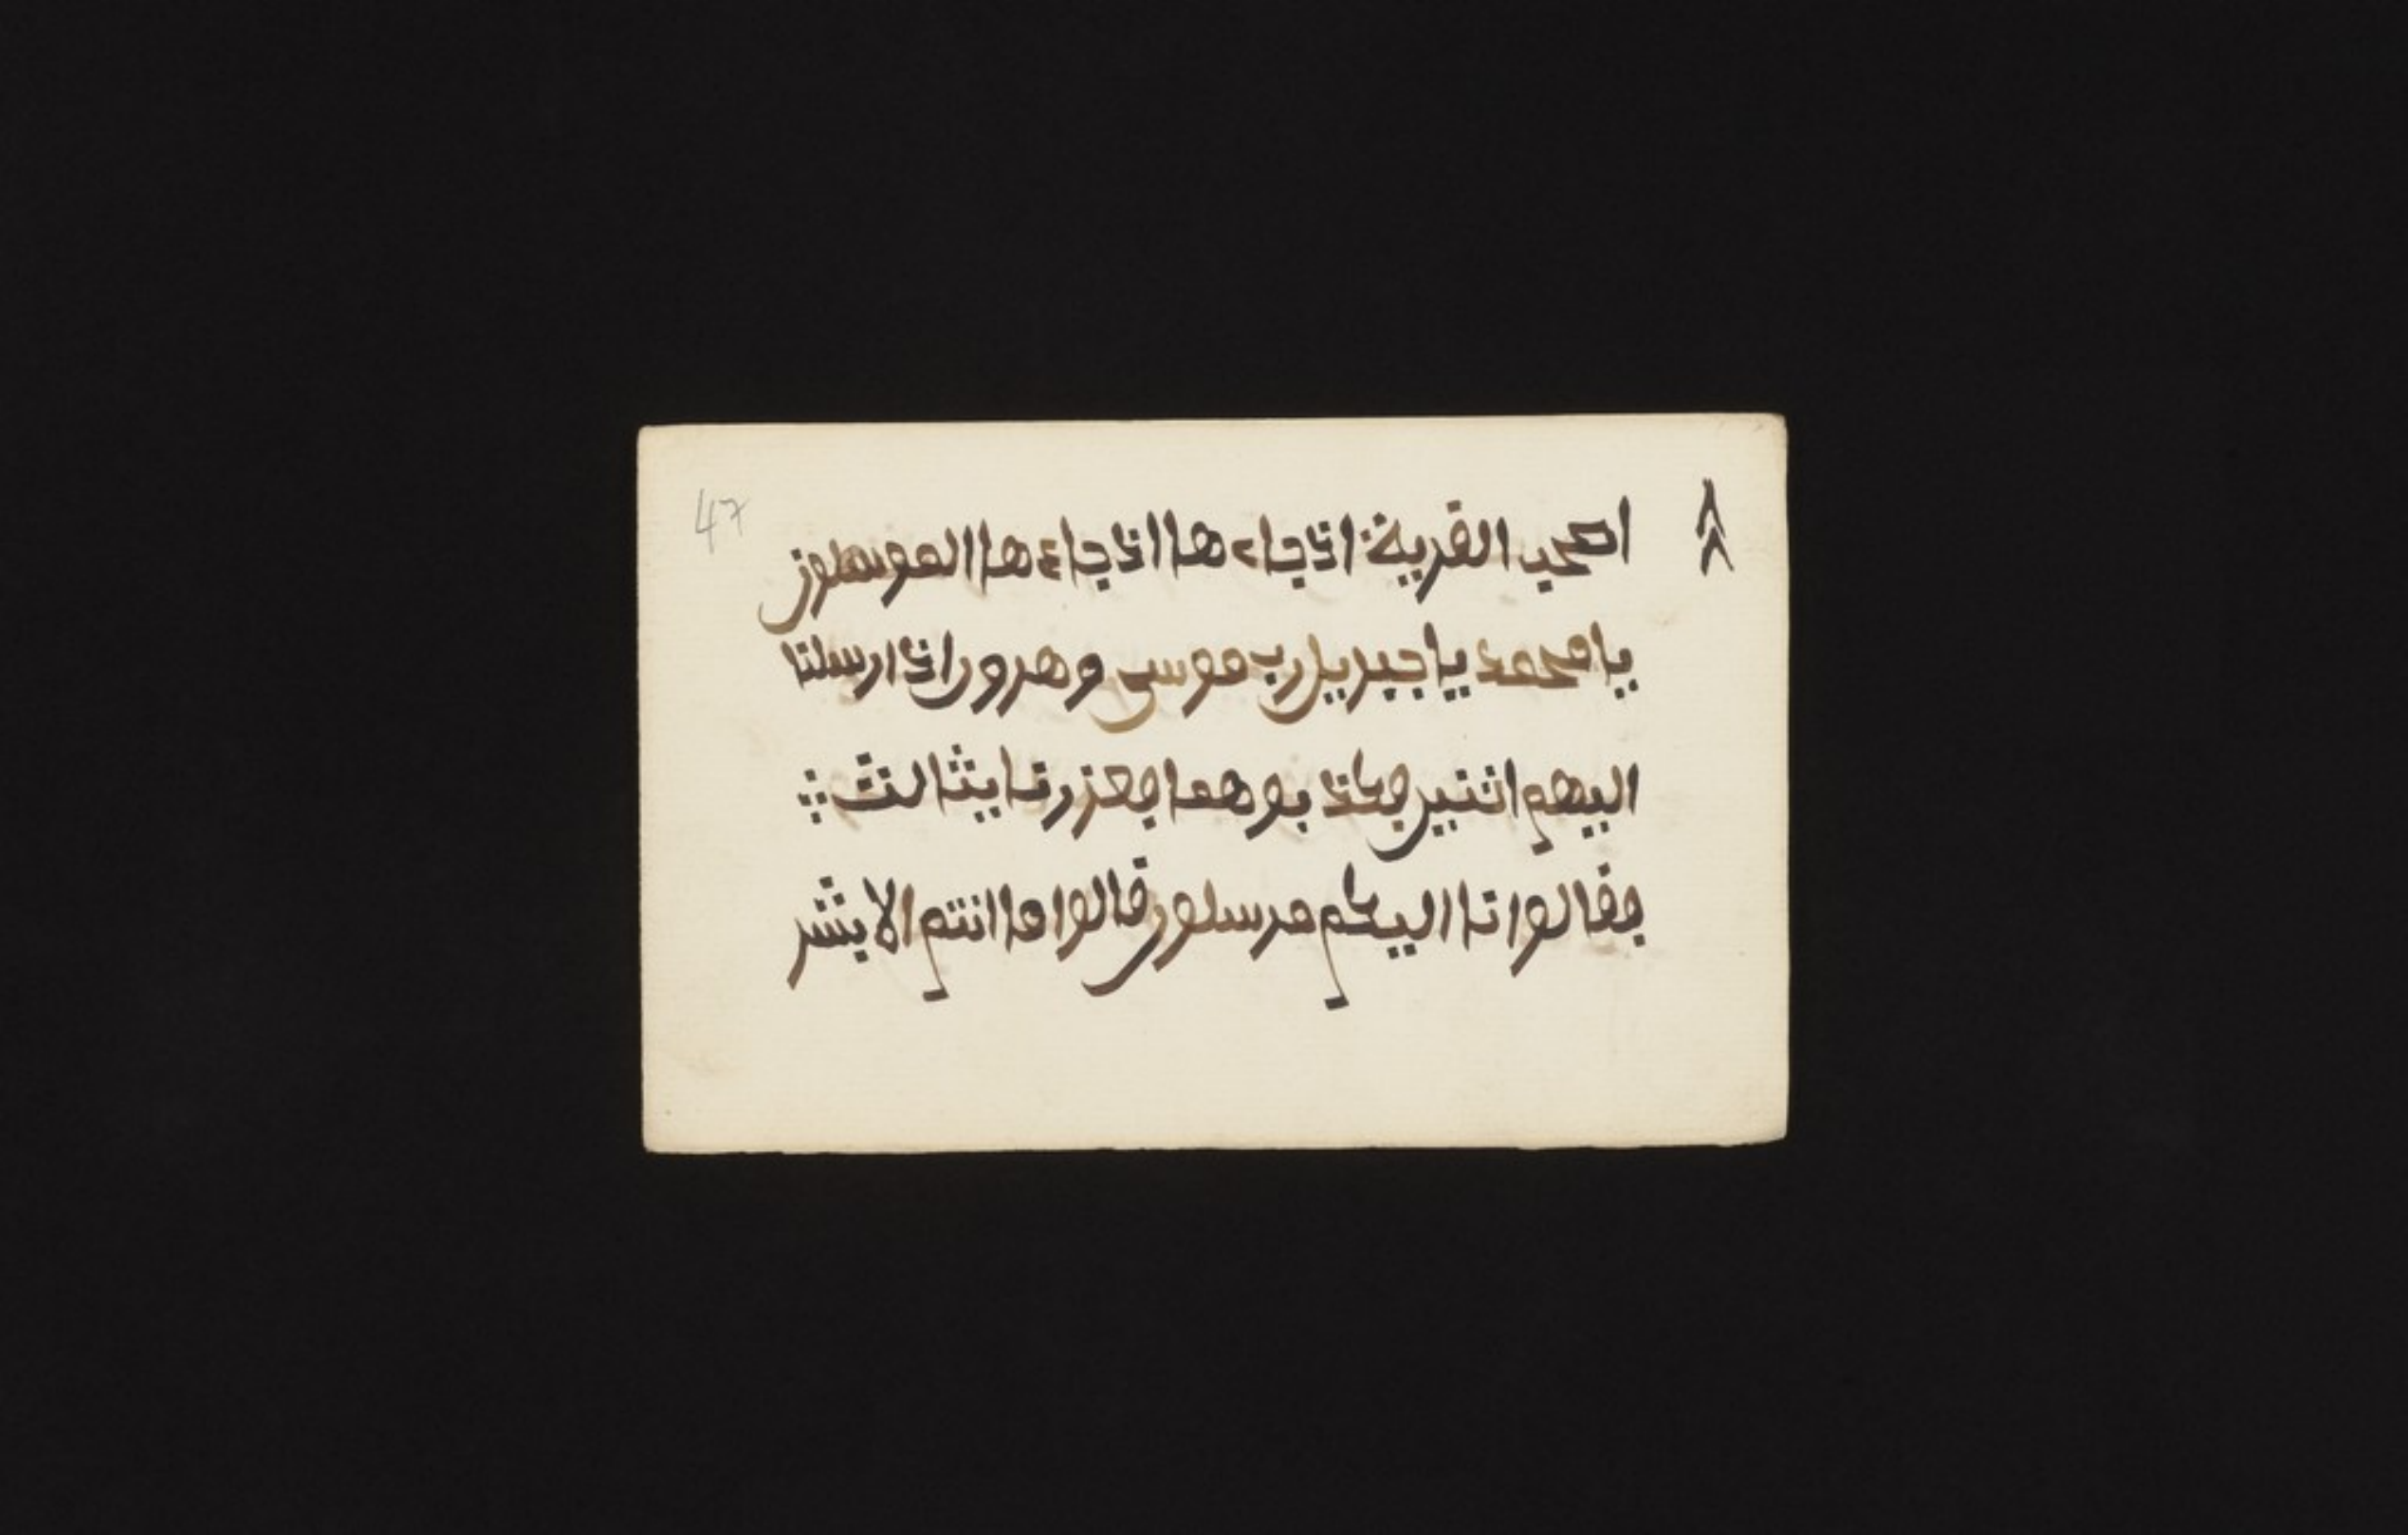 47
اصحب القرية اذ جاء ها اذ جاء ها المرسلون
يا محمد يا جبريل رب موسى وهرون اذ ارسلنا
اليهم اثنين فكذ بوهما فعززنا بثالث
فقالوا انا اليكم مرسلون قالوا ما انتم الا بشر